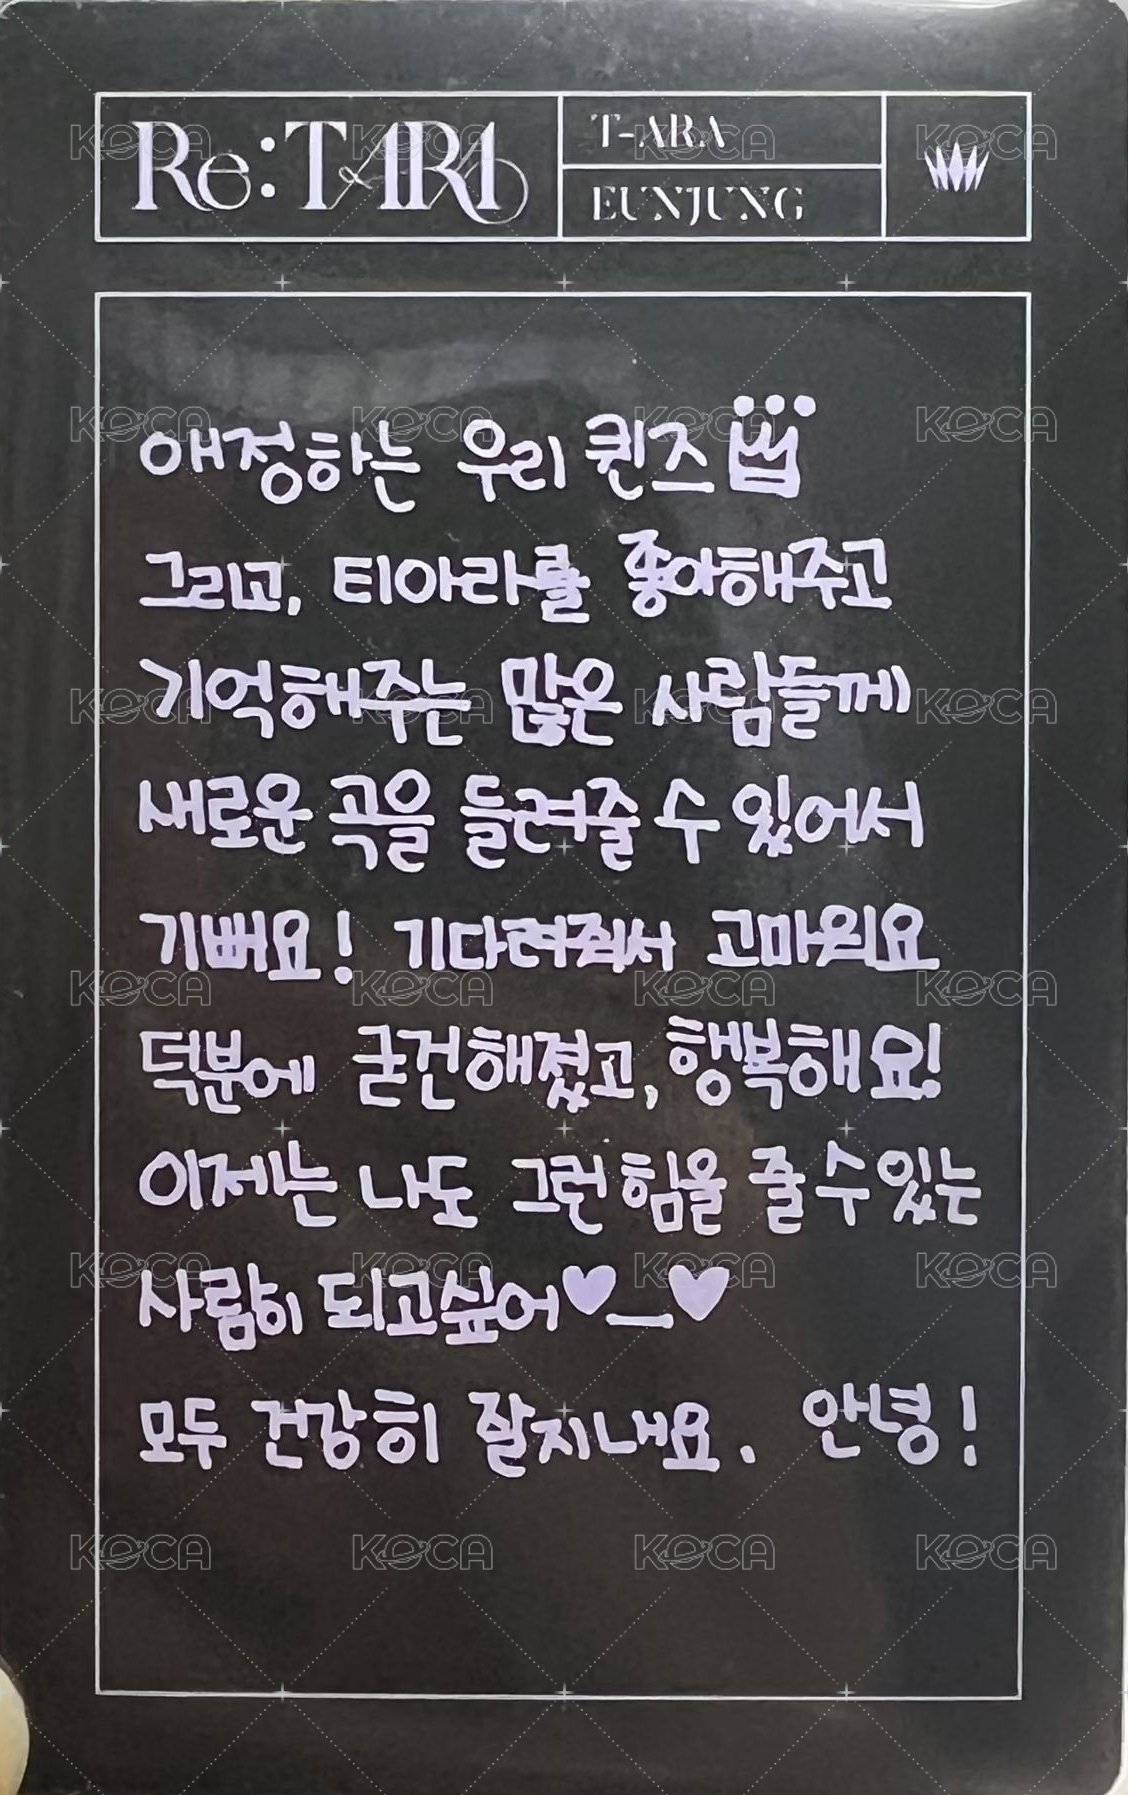 Re:T-ARA
T-ARA
EUNJUNG
애정하는 우리 퀸즈
그리고, 티아라를 좋아해주고
기억해주는 많은 사람들께
새로운 곡을 들려줄 수 있어서
기뻐요! 기다려줘서 고마워요
덕분에 굳건해졌고, 행복해요!
이제는 나도 그런 힘을 줄 수 있는
사람이 되고싶어♥_♥
모두 건강히 잘지내요. 안녕!
KOCA KOCA KOCA KOCA
KOCA KOCA KOCA KOCA
KOCA KOCA KOCA KOCA
KOCA KOCA KOCA KOCA
KOCA KOCA KOCA KOCA
KOCA KOCA KOCA KOCA